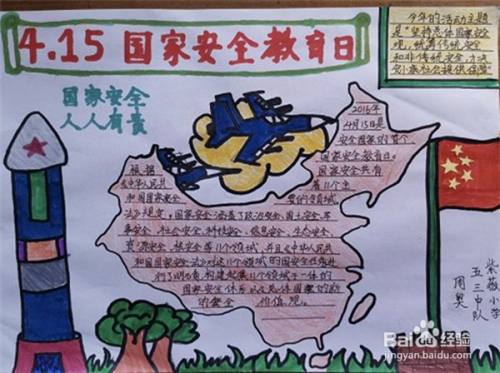 4.15 国家安全教育日
今年的活动主题
是“坚持总体国家安全
观，统筹传统安全
和非传统安全，为决
安小康社会提供保障”
国家安全
人人有责
2016年
4月15日是
全国国家的首个
国家安全教育日。
国家安全共有
着11个主
要的领域
根据
《中华人民共
和国国家安全
法》规定，国家安全涵盖了政治安全、国土安全、军
事安全、社会安全、科技安全、信息安全、生态安全、
资源安全、核安全等11个领域，并且《中华人民共
和国国家安全法》对这11个领域的国家安全任务
进行了明确，构建起集11个领域于一体的
国家安全体系以及总体国家的防
的安全价值观。
紫薇小学
五三中队
周奥
Baidu 经验
jingyan.baidu.com